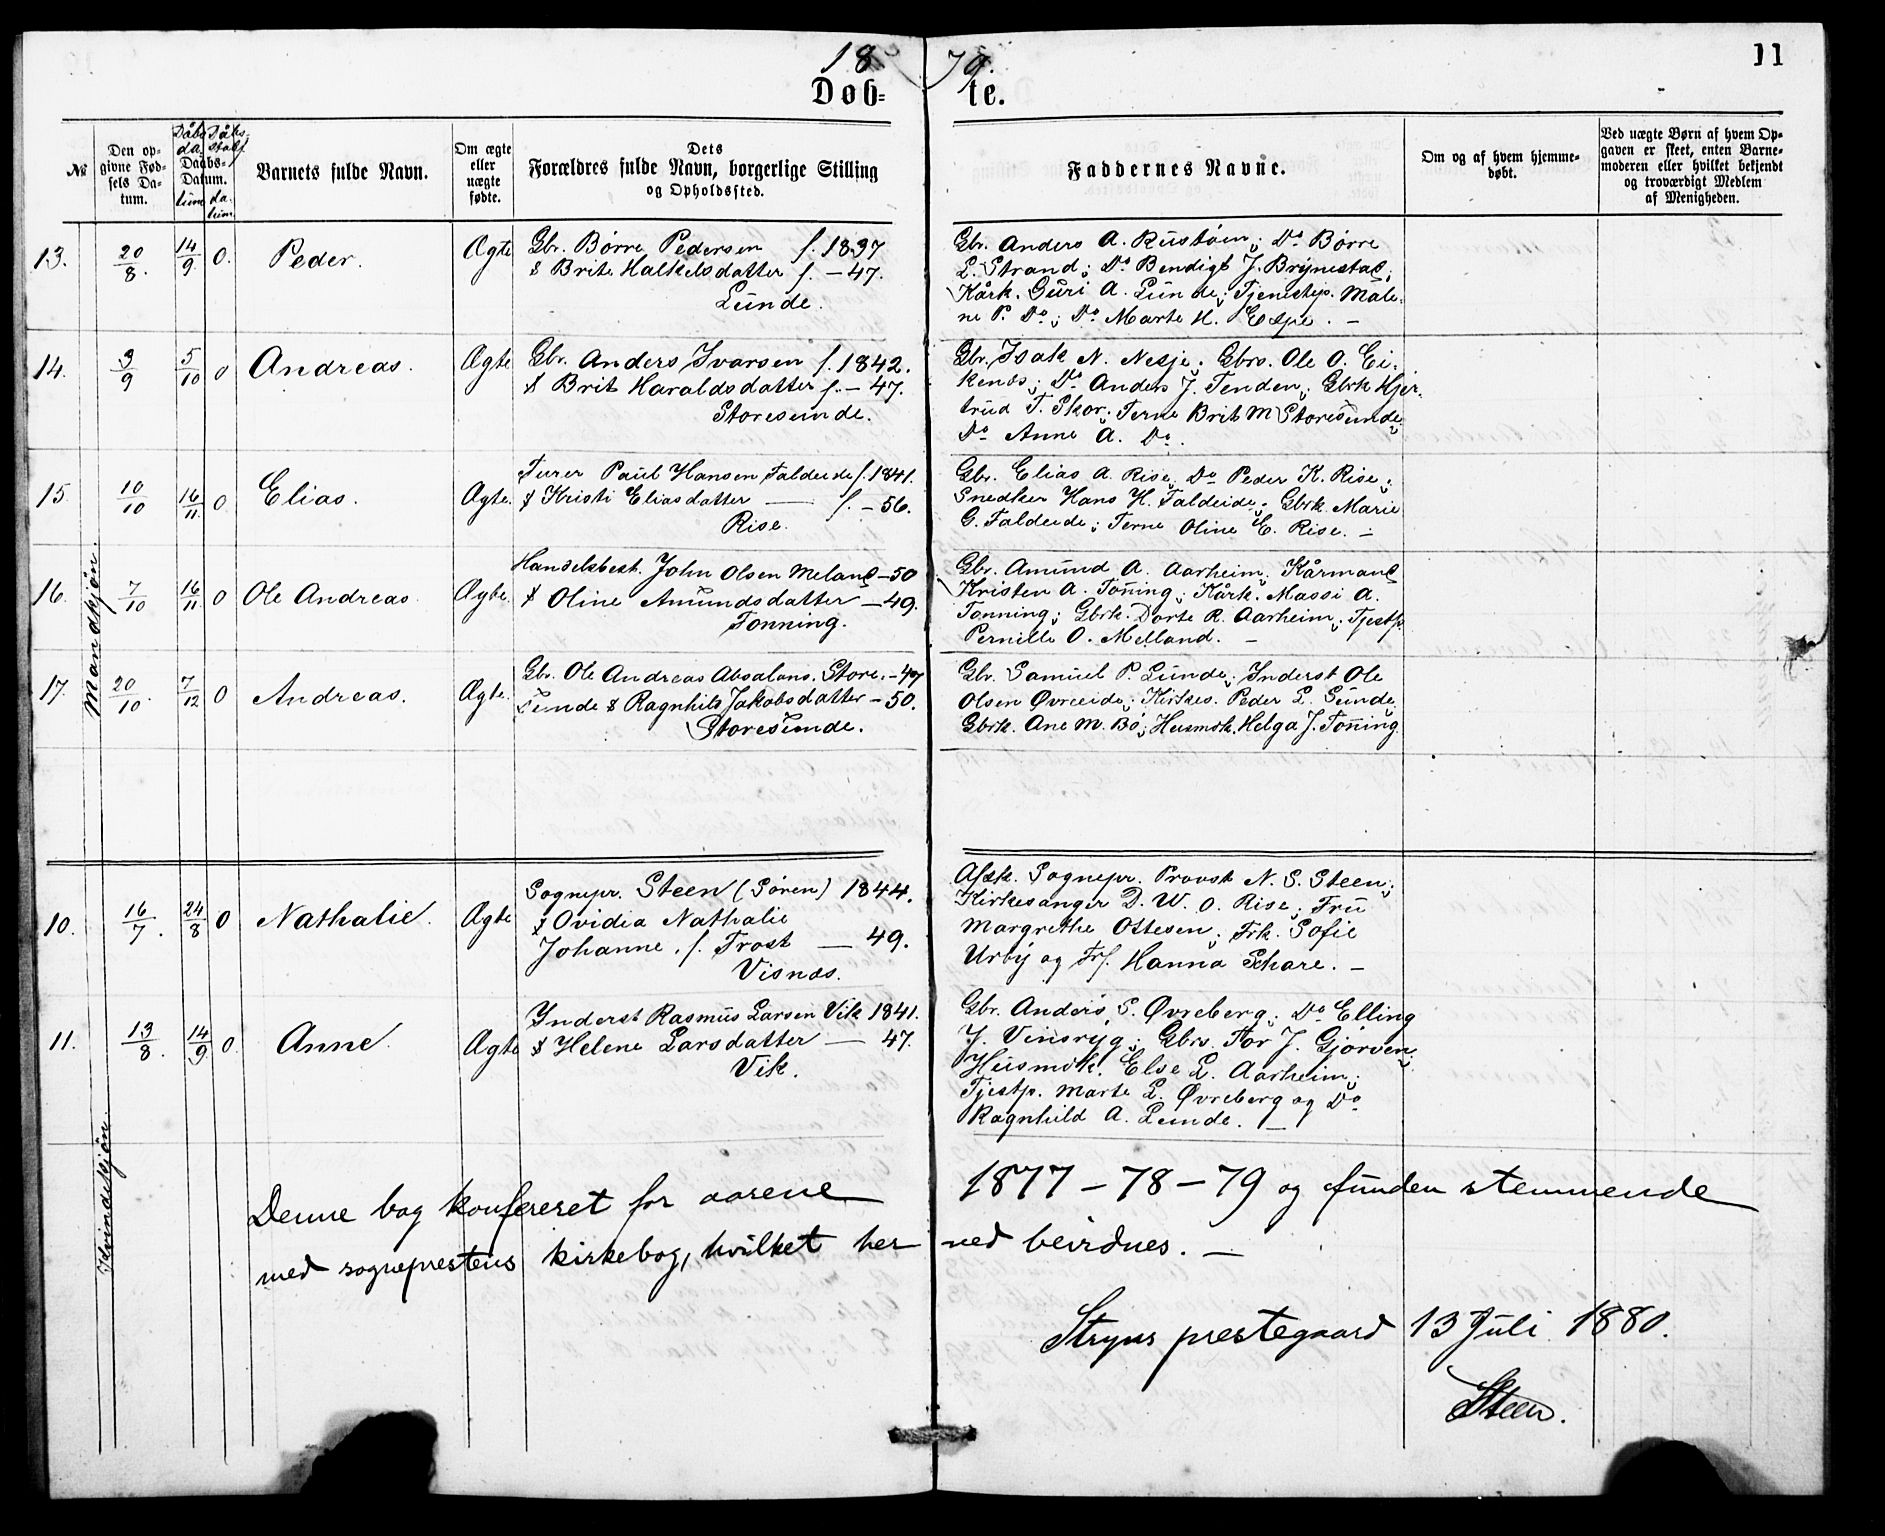 18 79.
11
Døb- te.
№
Den op-
givne Fød-
sels Da-
tum.
Dåbs
da-
tum
Daabs-
Datum.
Dåbs-
sted
Barnets fulde Navn.
Om ægte
eller
uægte
fødte.
Dets
Forældres fulde Navn, borgerlige Stilling
og Opholdssted.
Faddernes Navne.
Om og af hvem hjemme-
døbt.
Ved uægte Børn af hvem Op-
gaven er skeet, enten Barne-
moderen eller hvilket bekjendt
og troværdigt Medlem
af Menigheden.
Mandkjøn.
13. 20/8. 14/9 0. Peder. Ægte
Gbr. Børre Pedersen f. 1837
& Brite Halkelsdatter f. - 47.
Lunde.
Gbr. Anders A. Rustøen; Do Børre
L. Strand; Do Bendigt J. Brynestad;
Kårk. Guri A. Lunde; Tjenestep. Måle-
ne P. Do; Do Marte H. Espe. -
14. 3/9 5/10 0 Andreas. Ægte
Gbr. Anders Ivarsen f. 1842.
& Brit Haraldsdatter f. - 47.
Storesunde.
Gbr. Isak N. Nesje; Gbrs. Ole O. Ei-
kenes; Do Anders J. Tenden; Gbrk Hjer-
trud T. Skor; Terne Brit M Storesunde
Do Anne A. Do.
15. 10/10 16/11 0 Elias. Ægte.
Turer Paul Hansen Faldeide f. 1841.
& Kristi Eliasdatter — f. - 56.
Rise.
Gbr. Elias A. Rise; Do Peder K. Rise;
Snedker Hans H. Faldeide; Gbrk Marie
G. Faldeide; Terne Oline E. Rise. -
16. 7/10 16/11 0 Ole Andreas Ægte.
Handelsbest. John Olsen Meland - 50
& Oline Amundsdatter - 49.
Tonning.
Gbr. Amund A. Aarheim; Kårmand
Kristen A. Toning; Kårk. Massi A.
Tonning; Gbrk. Dorte R. Aarheim; Tjestp.
Pernille O. Melland. -
17. 20/10. 7/12 0 Andreas. Ægte.
Gbr. Ole Andreas Absalons. Store- - 47
sunde & Ragnhild Jakobsdatter - 50.
Storesunde.
Gbr. Samuel P. Lunde; Inderst Ole
Olsen Øvreeide; Kirkes. Peder L. Sunde;
Gbrk. Ane M. Bø; Husmdk. Helga J. Toning.
Kvindekjøn.
10. 16/7. 24/8 0 Nathalie. Ægte
Sognepr. Steen (Søren) 1844.
& Ovidia Nathalie
Johanne, f. Trost — 49.
Visnæs.
Afsk. Sognepr. Provst N. S. Steen;
Kirkesanger D. W. O. Rise; Fru
Margrethe Ottesen; Frk. Sofie
Urby og Frk. Hanna Schare. -
11. 13/8. 14/9 0 Anne. Ægte
Inderst Rasmus Larsen Vik 1841.
& Helene Larsdatter — 47.
Vik.
Gbr. Anders S. Øvreberg; Do Elling
J. Vinsryg; Gbrs. Tor J. Gjørven;
Husmdk. Else L. Aarheim;
Tjestp. Marte L. Øvreberg og Do
Ragnhild A. Lunde. -
Denne bog konfereret for aarene 1877 - 78 - 79 og funden stemmende
med sogneprestens kirkebog, hvilket her ved bevidnes. -
Stryns prestegaard 13 Juli 1880.
SSteen.